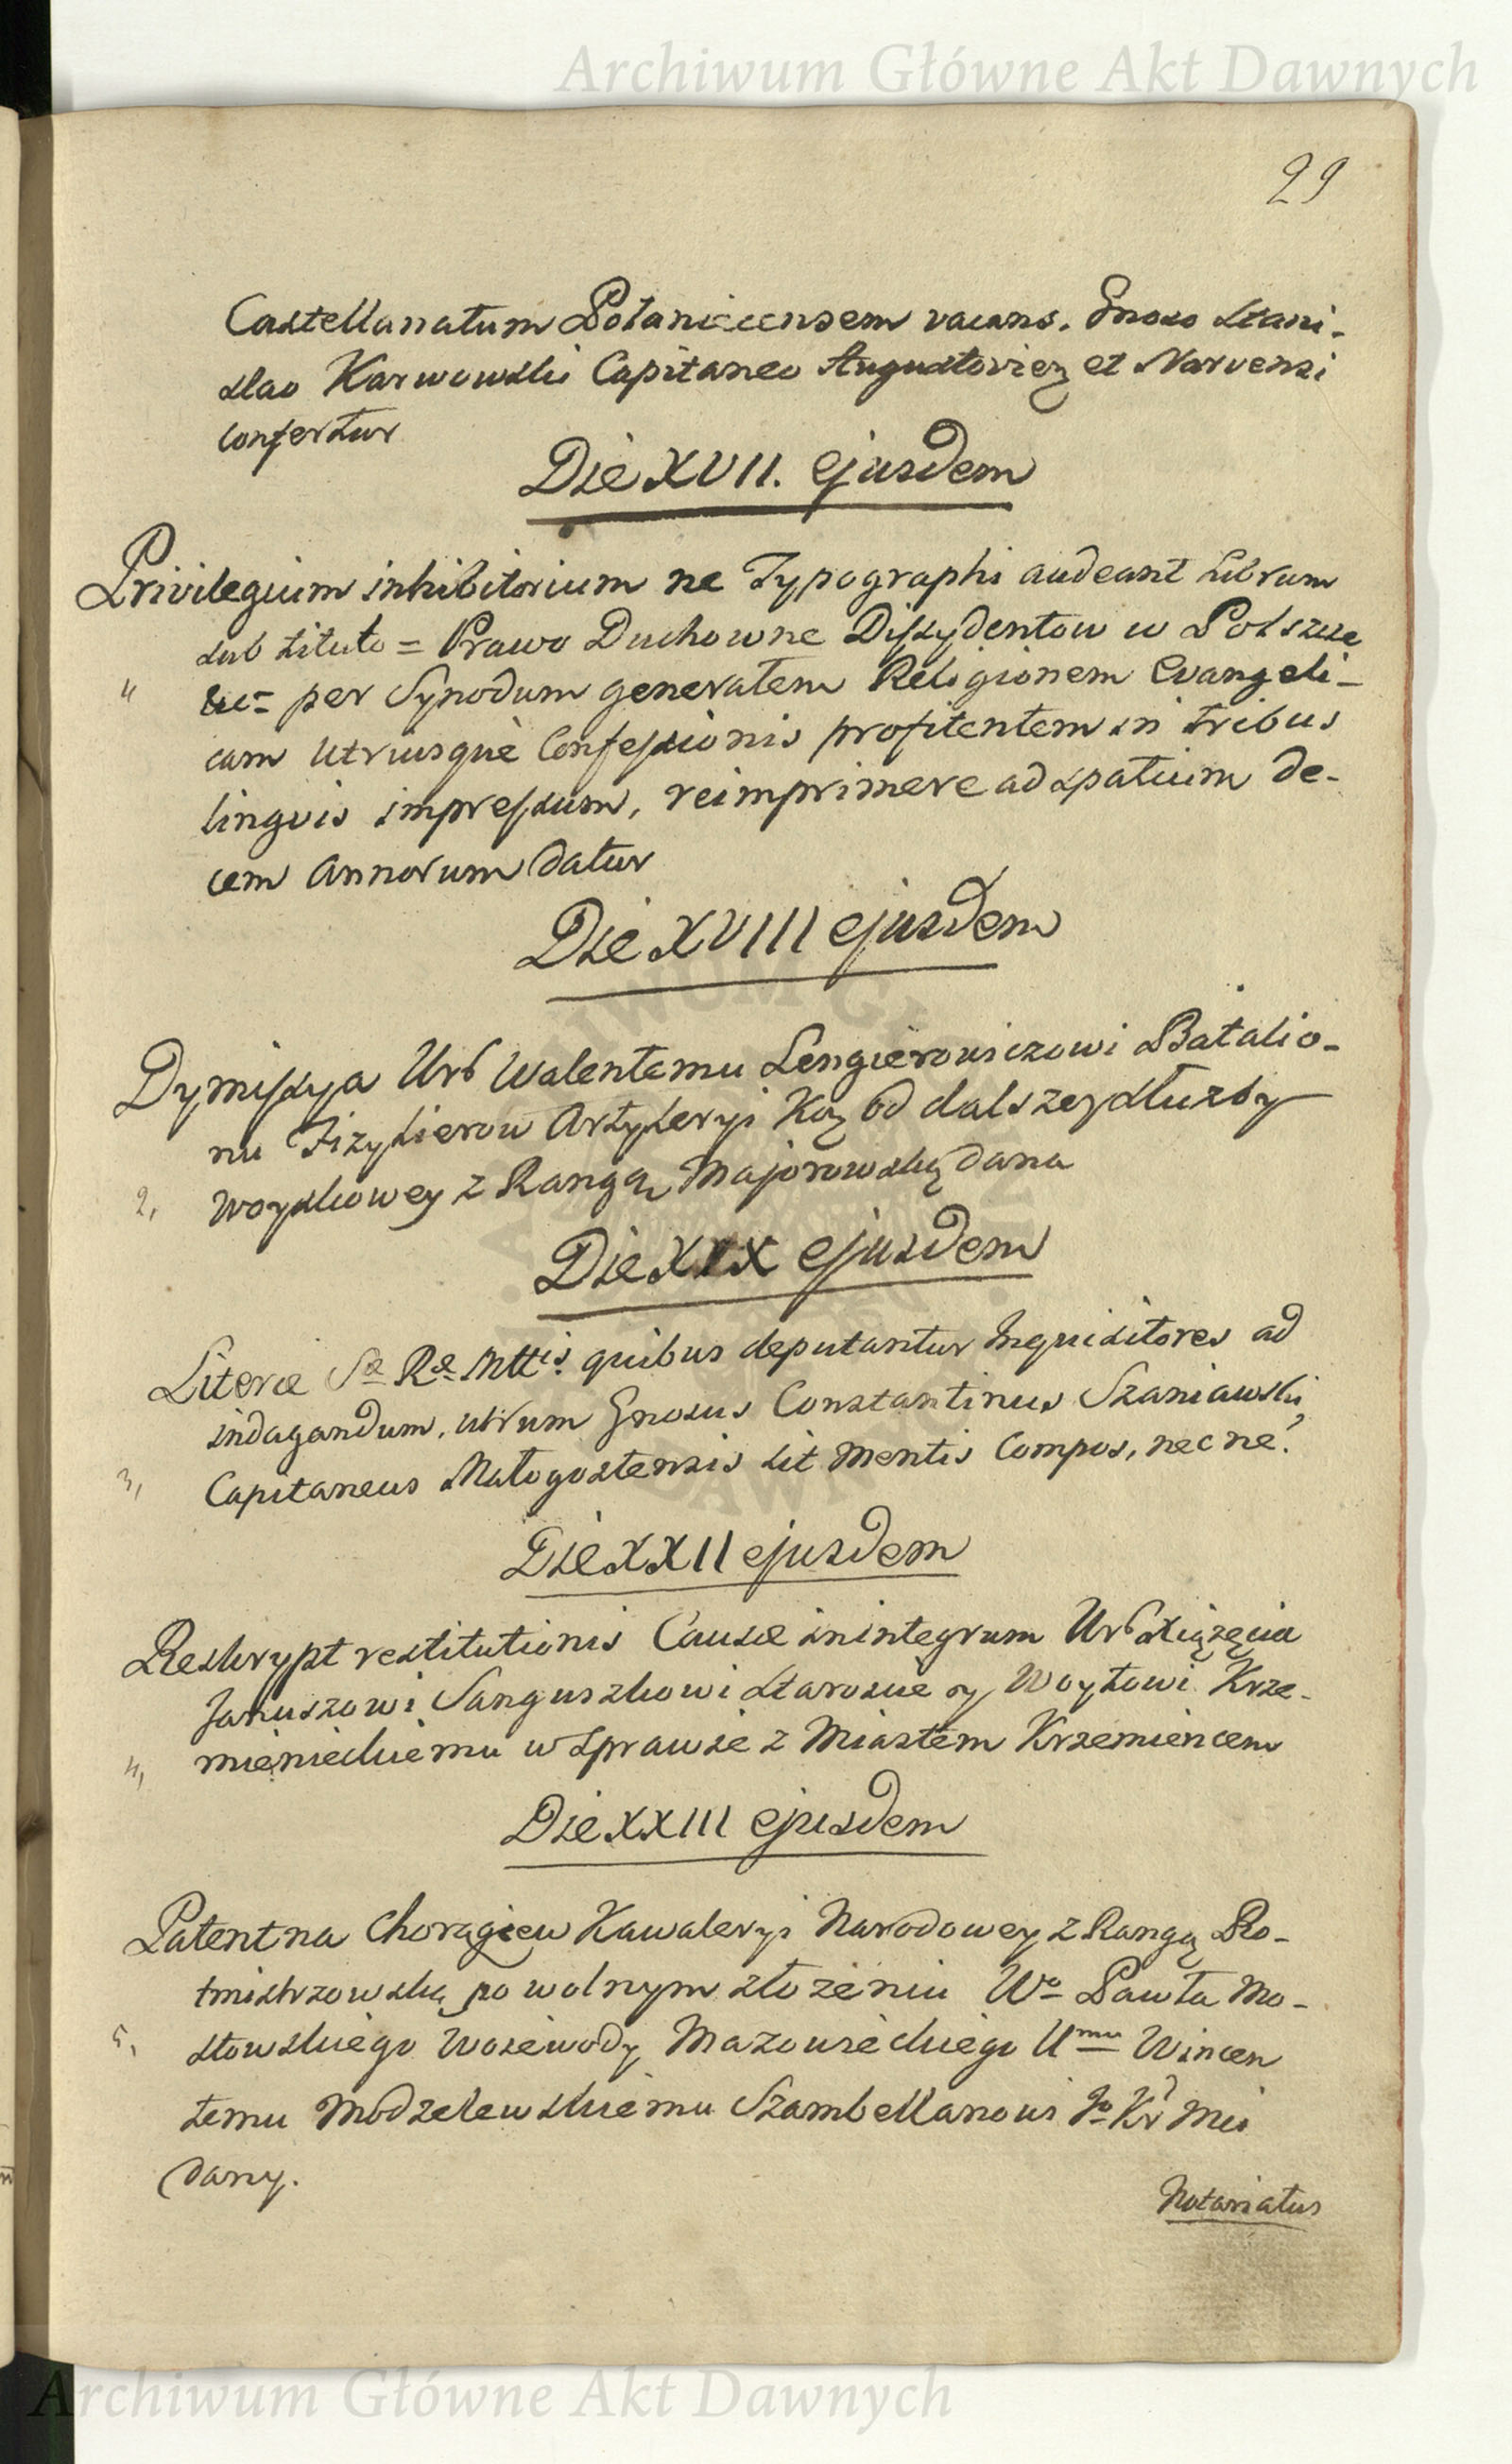 Archiwum Główne Akt Dawnych
29
Castellanatum Polanicensem vacans. Gnoso Stani-
slao Karwowski Capitaneo Augustoviez et Narvensi
confertur
Die XVII. ejusdem
Privilegium inhibitorium ne Typographi audeant Librum
sub titulo = Prawo Duchowne Dissydentow w Polszcze
etc= per Synodum generalem Religionem Evangeli-
cam utriusque Confessionis profitentem in tribus
linguis impressum, reimprimere ad spatium de-
cem annorum datur
Die XVIII ejusdem
Dymissya Urod Walentemu Lengierowiczowi Batalio-
nu Fizylierow Artyleryi Kor od dalszey służby
2, woyskowey z Rangą Majorowską dana
Die XIX ejusdem
Literæ Sæ Ræ Mttis quibus deputantur Inquisitores ad
indagandum, utrum Gnosus Constantinus Szaniawski
3, Capitaneus Małogostensis sit mentis compos, nec ne?
Die XXII ejusdem
Reskrypt restitutionis Causæ in integrum Urod Xiążęcia
Januszowi Sanguszkowi Staroscie y Woytowi Krze-
4, mienieckiemu w sprawie z Miastem Krzemiencem
Die XXIII ejusdem
Patent na Chorągiew Kawaleryi Narodowey z Rangą Ro-
tmistrzowską po wolnym złożeniu Wo Pawła Mo-
5, stowskiego Wojewody Mazowieckiego Umu Wincen
temu Modzelewskiemu Szambellanowi Jo Kr Mci
dany.
Notariatus
Archiwum Główne Akt Dawnych